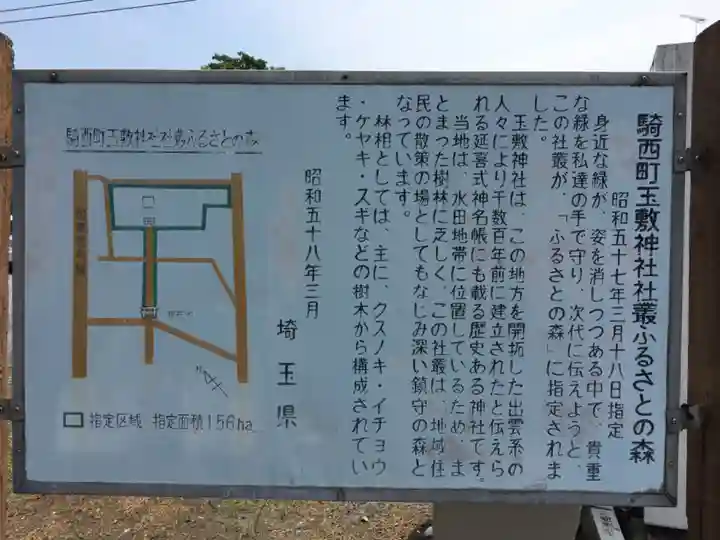 騎西町玉敷神社社叢ふるさとの森
昭和五十七年三月十八日指定
身近な緑が、姿を消しつつある中で、貴重
な緑を私達の手で守り、次代に伝えようと、
この社叢が、「ふるさとの森」に指定されま
した。
玉敷神社は、この地方を開拓した出雲系の
人々により千数百年前に建立されたと伝えら
れる延喜式神名帳にも載る歴史ある神社です。
当地は、水田地帯に位置しているため、ま
とまった樹林に乏しく、この社叢は、地域住
民の散策の場としてもなじみ深い鎮守の森と
なっています。
林相としては、主に、クスノキ・イチョウ
・ケヤキ・スギなどの樹木から構成されてい
ます。
昭和五十八年三月
埼玉県
騎西町玉敷神社社叢ふるさとの森
指定区域 指定面積1.56ha